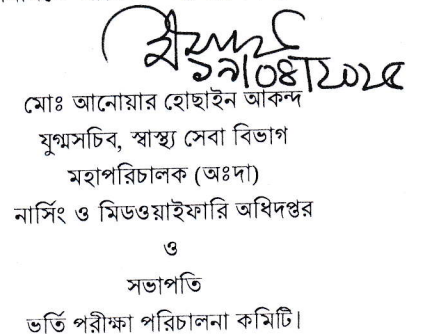 ১৯/০৪/২০২৫
মোঃ আনোয়ার হোছাইন আকন্দ
যুগ্মসচিব, স্বাস্থ্য সেবা বিভাগ
মহাপরিচালক (অঃদা)
নার্সিং ও মিডওয়াইফারি অধিদপ্তর
ও
সভাপতি
ভর্তি পরীক্ষা পরিচালনা কমিটি।